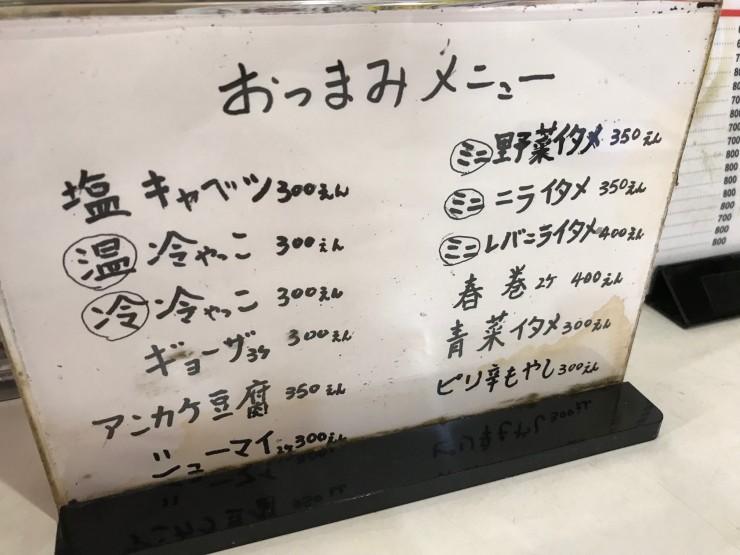 おつまみメニュー
塩キャベツ300えん
温 冷やっこ 300えん
冷 冷やっこ 300えん
ギョーザ3ケ 300えん
アンカケ豆腐 350えん
シューマイ2ケ300えん
ミニ野菜イタメ 350えん
ミニ ニライタメ 350えん
ミニレバニライタメ400えん
春巻2ケ 400えん
青菜イタメ300えん
ピリ辛もやし300えん